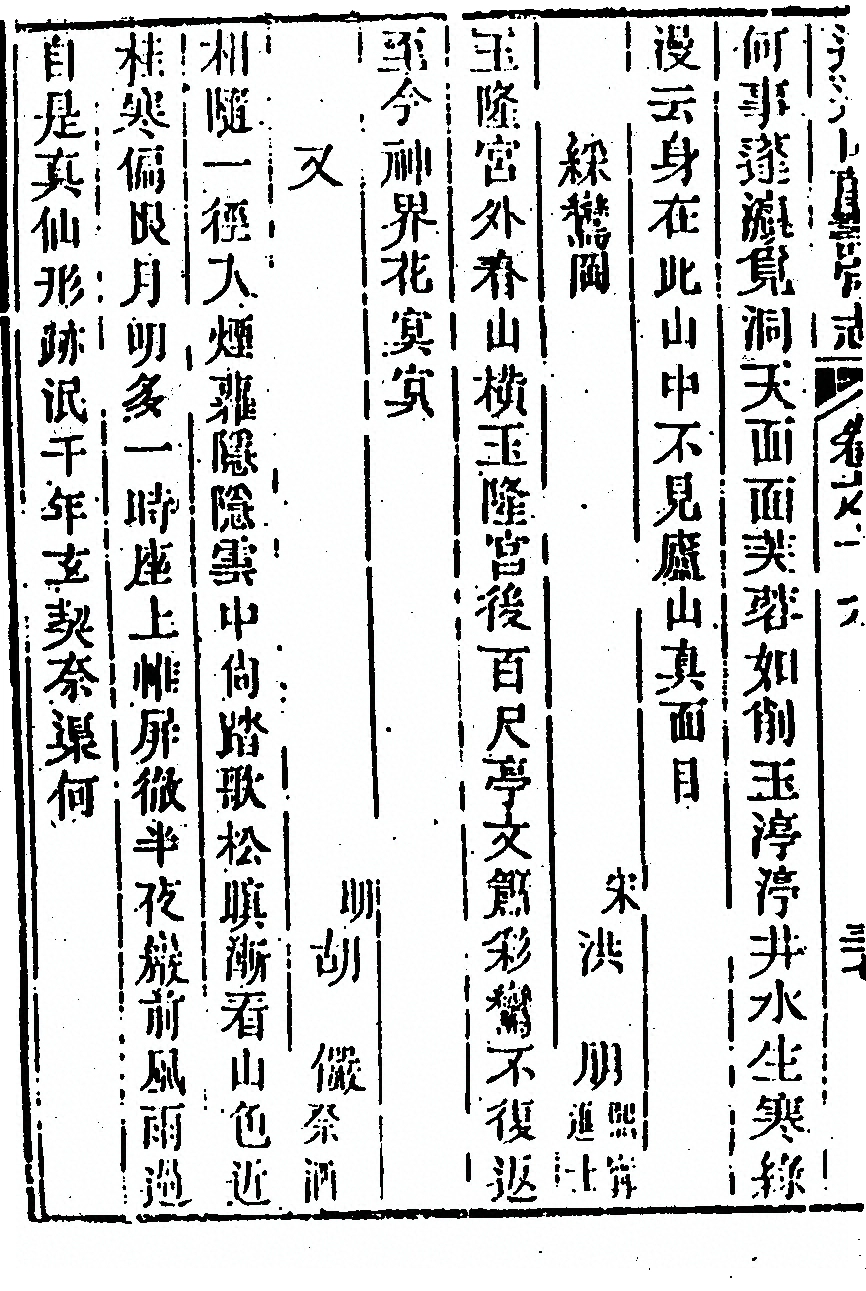 何事蓬瀛覓洞天面面芙蓉如削玉渟渟井水生寒綠
漫云身在此山中不見廬山真面目
綵鸞岡 宋洪朋熙寧進士
玉隆宮外春山橫玉隆宮後百尺亭文簫彩鸞不復返
至今神界花寞寞
又 明胡儼祭酒
相隨一徑入煙蘿隱隱雲中尙踏歌松暝漸看山色近
桂寒偏恨月明多一時座上帷屏徹半夜巖前風雨過
自是真仙形跡泯千年玄契奈渠何